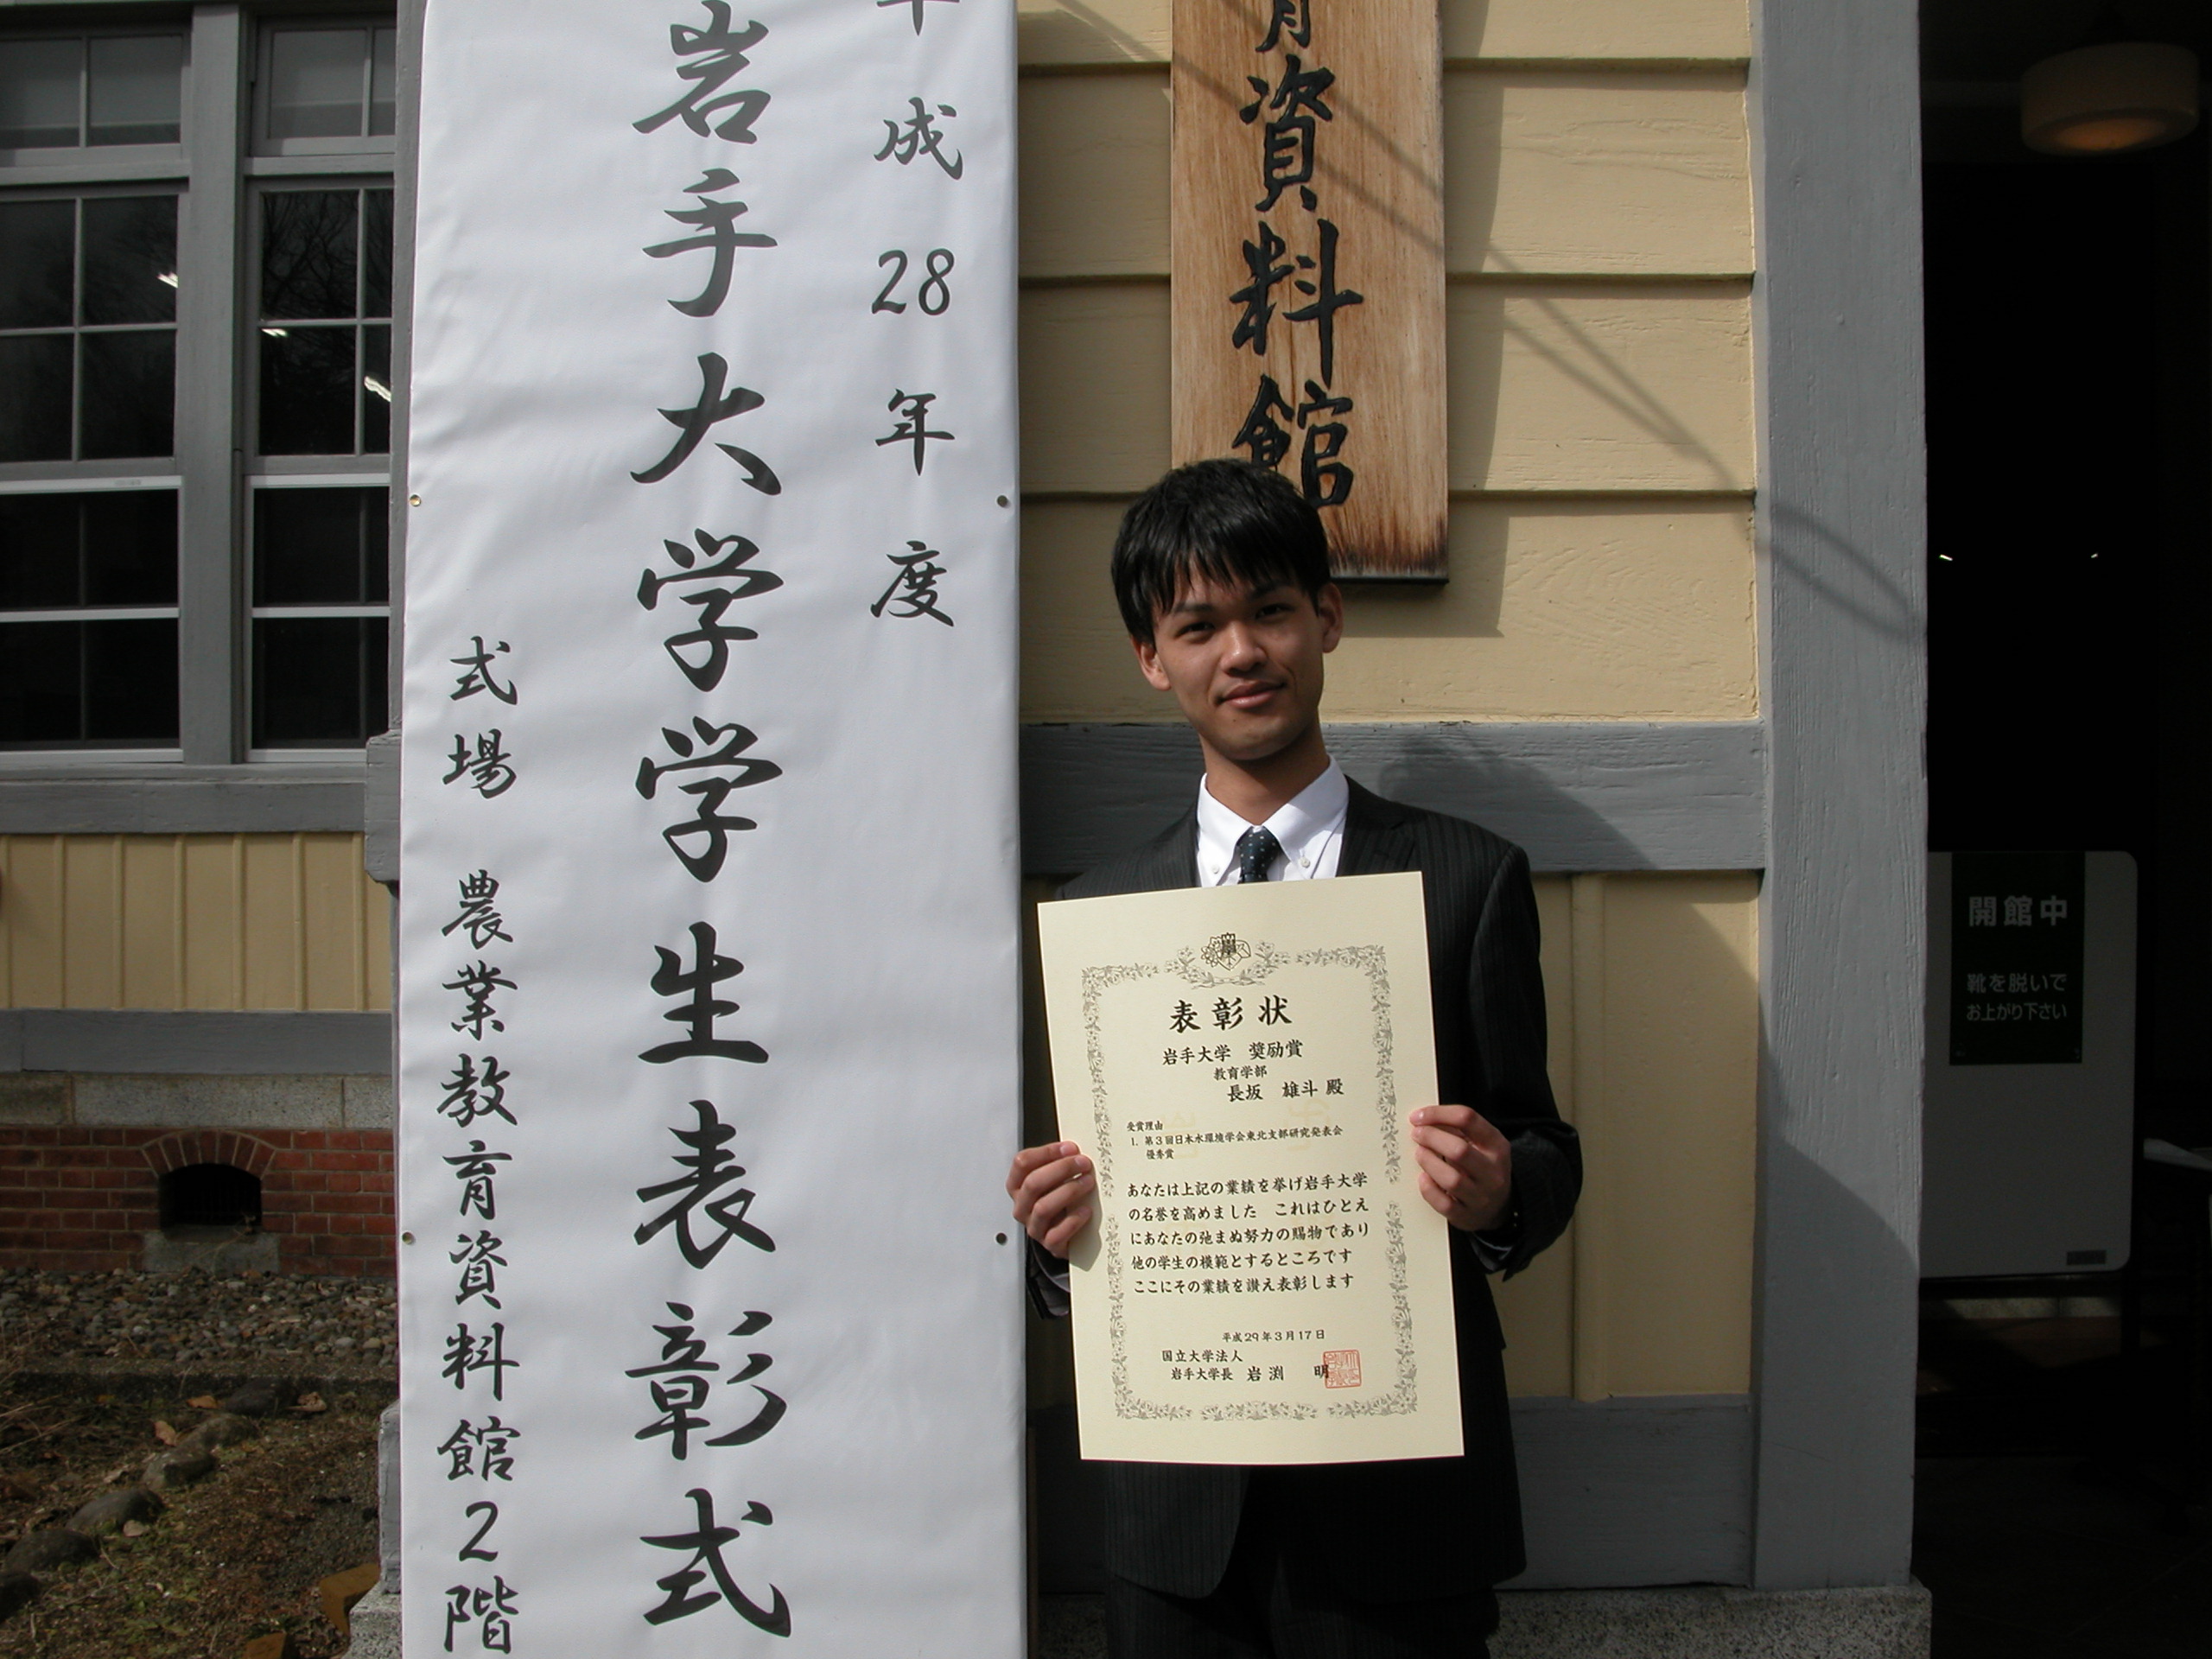 平成28年度
岩手大学学生表彰式
式場 農業教育資料館2階
育資料館
表彰状
岩手大学 奨励賞
教育学部
長坂 雄斗 殿
受賞理由
1. 第3回日本水環境学会東北支部研究発表会
優秀賞
あなたは上記の業績を挙げ岩手大学
の名誉を高めました これはひとえ
にあなたの弛まぬ努力の賜物であり
他の学生の模範とするところです
ここにその業績を讃え表彰します
平成29年3月17日
国立大学法人
岩手大学長 岩渕 明
開館中
靴を脱いで
お上がり下さい